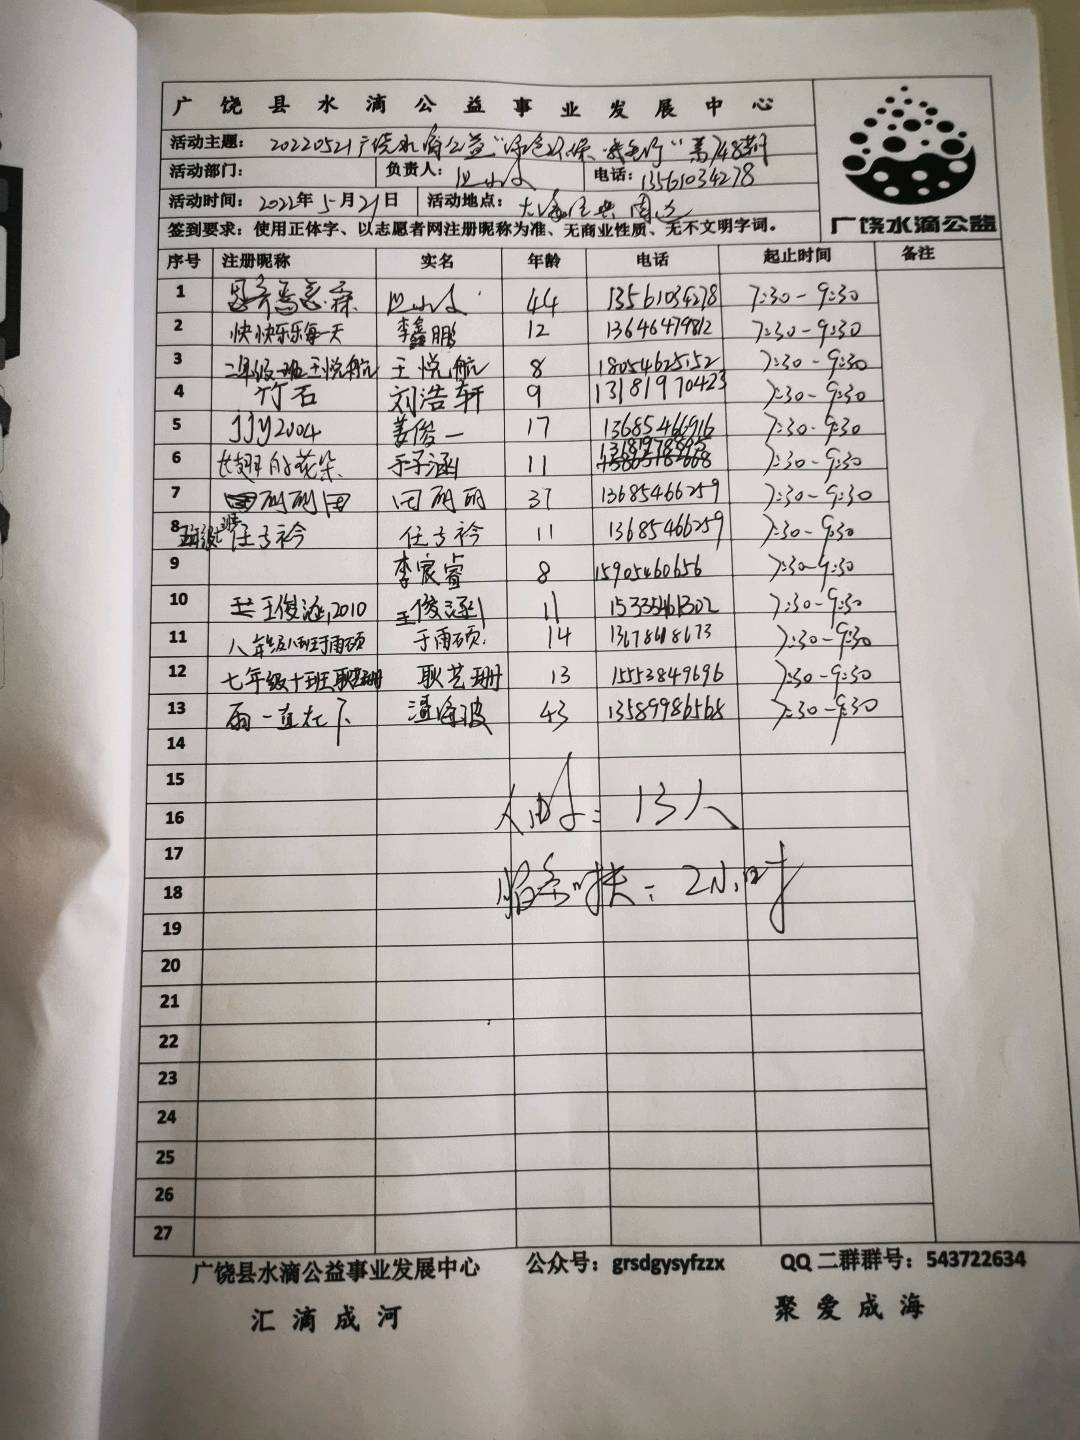 广饶县水滴公益事业发展中心
活动主题：20220521广饶水滴公益"绿色环保、我先行"第748期
活动部门： 负责人： 电话：13561034278
活动时间：2022年5月21日 活动地点：
签到要求：使用正体字、以志愿者网注册昵称为准、无商业性质、无不文明字词。
广饶水滴公益
序号 注册昵称 实名 年龄 电话 起止时间 备注
1 44 13561034278 7:30-9:30
2 快快乐乐每一天 李鑫鹏 12 13646479812 7:30-9:30
3 二年级一班王悦航 王悦航 8 18054625152 7:30-9:30
4 竹石 刘浩轩 9 13181970423 7:30-9:30
5 JJY2004 姜俊一 17 13685466916 7:30-9:30
6 长翅的花朵 于子涵 11 7:30-9:30
7 丽丽 37 13685466259 7:30-9:30
8 任子衿 任子衿 11 13685466259 7:30-9:30
9 李宸睿 8 15905460656 7:30-9:30
10 王俊涵2010 王俊涵 11 15335461302 7:30-9:30
11 八年级八班于雨硕 于雨硕 14 7:30-9:30
12 七年级十班耿艺珊 耿艺珊 13 15553849696 7:30-9:30
13 雨一直在下 43 13589986568 7:30-9:30
14
15
16 13人
17
18 服务时长：2小时
19
20
21
22
23
24
25
26
27
广饶县水滴公益事业发展中心 公众号：grsdgysyfzzx QQ二群群号：543722634
汇滴成河 聚爱成海